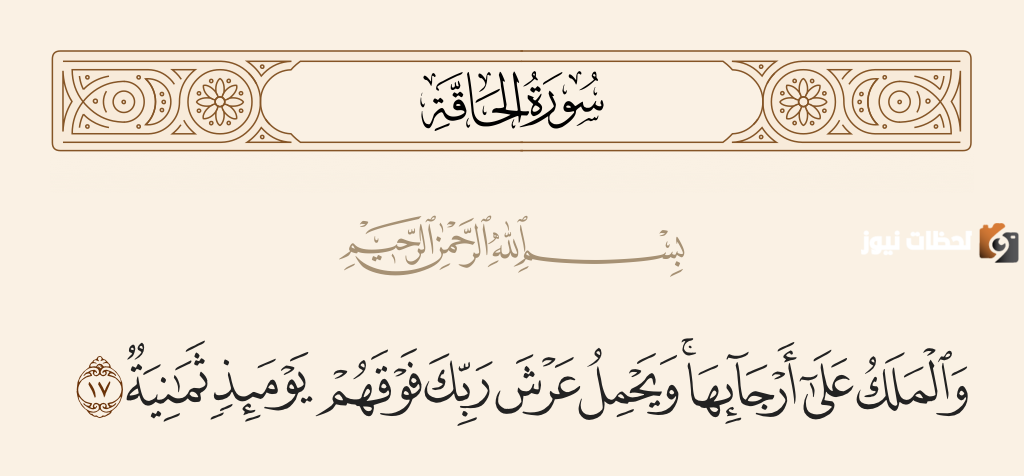 سُورَةُ الحَاقَّةِ
بِسْمِ ٱللَّهِ ٱلرَّحْمَٰنِ ٱلرَّحِيمِ
لحظات نيوز
وَٱلْمَلَكُ عَلَىٰٓ أَرْجَآئِهَا ۚ وَيَحْمِلُ عَرْشَ رَبِّكَ فَوْقَهُمْ يَوْمَئِذٍ ثَمَٰنِيَةٌ ١٧